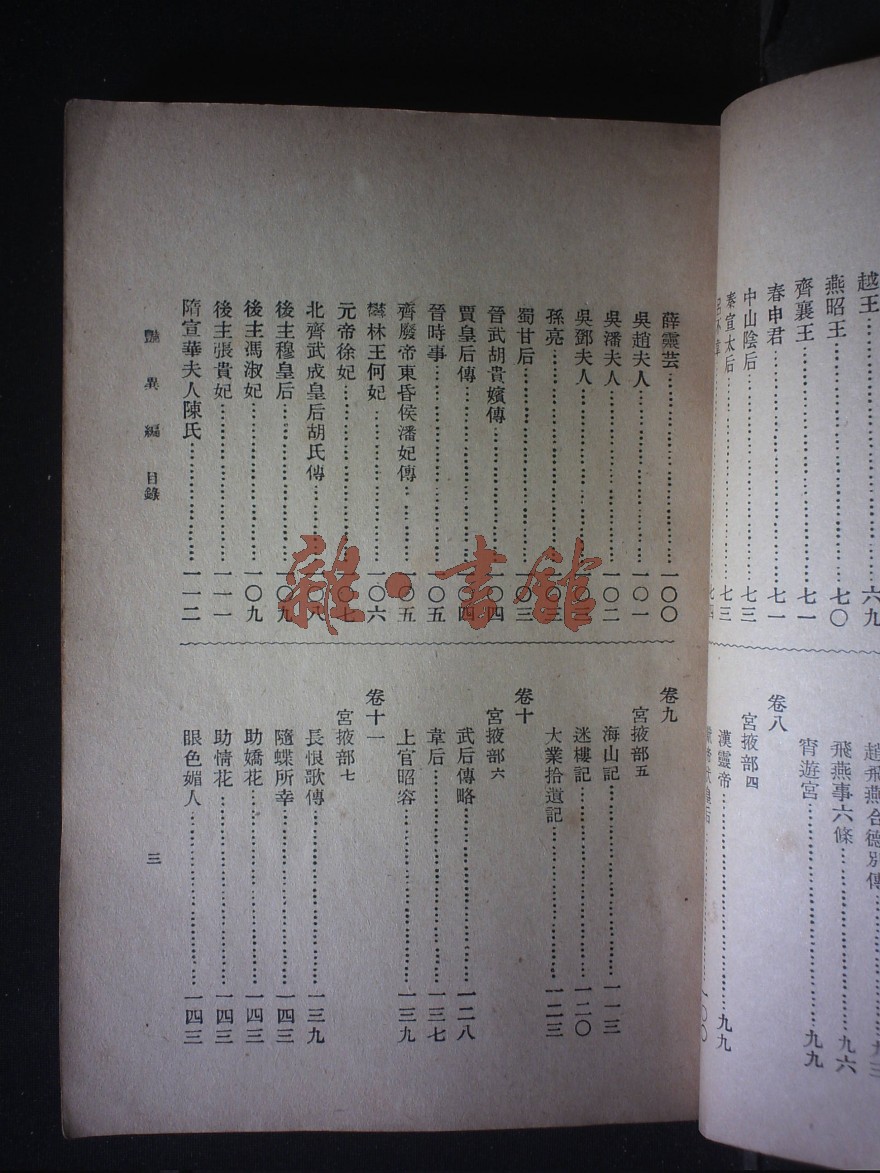 越王 六九
燕昭王 七〇
齊襄王 七一
春申君 七一
中山陰后 七三
秦宣太后 七三
趙飛燕合德別傳
飛燕事六條 九六
宵遊宮 九九
卷八
宮掖部四
漢靈帝 九九
薛靈芸 一〇〇
吳趙夫人 一〇一
吳潘夫人 一〇二
吳鄧夫人
孫亮
蜀甘后 一〇三
晉武胡貴嬪傳 一〇四
賈皇后傳 一〇四
晉時事 一〇五
齊廢帝東昏侯潘妃傳 一〇五
鬱林王何妃 一〇六
元帝徐妃 一〇七
北齊武成皇后胡氏傳 一〇八
後主穆皇后 一〇九
後主馮淑妃 一〇九
後主張貴妃 一一一
隋宣華夫人陳氏 一一二
卷九
宮掖部五
海山記 一一三
迷樓記 一二〇
大業拾遺記 一二三
卷十
宮掖部六
武后傳略 一二八
韋后 一三七
上官昭容 一三九
卷十一
宮掖部七
長恨歌傳 一三九
隨蝶所幸 一四三
助嬌花 一四三
助情花 一四三
眼色媚人 一四三
豔異編 目錄
三
雜·書館